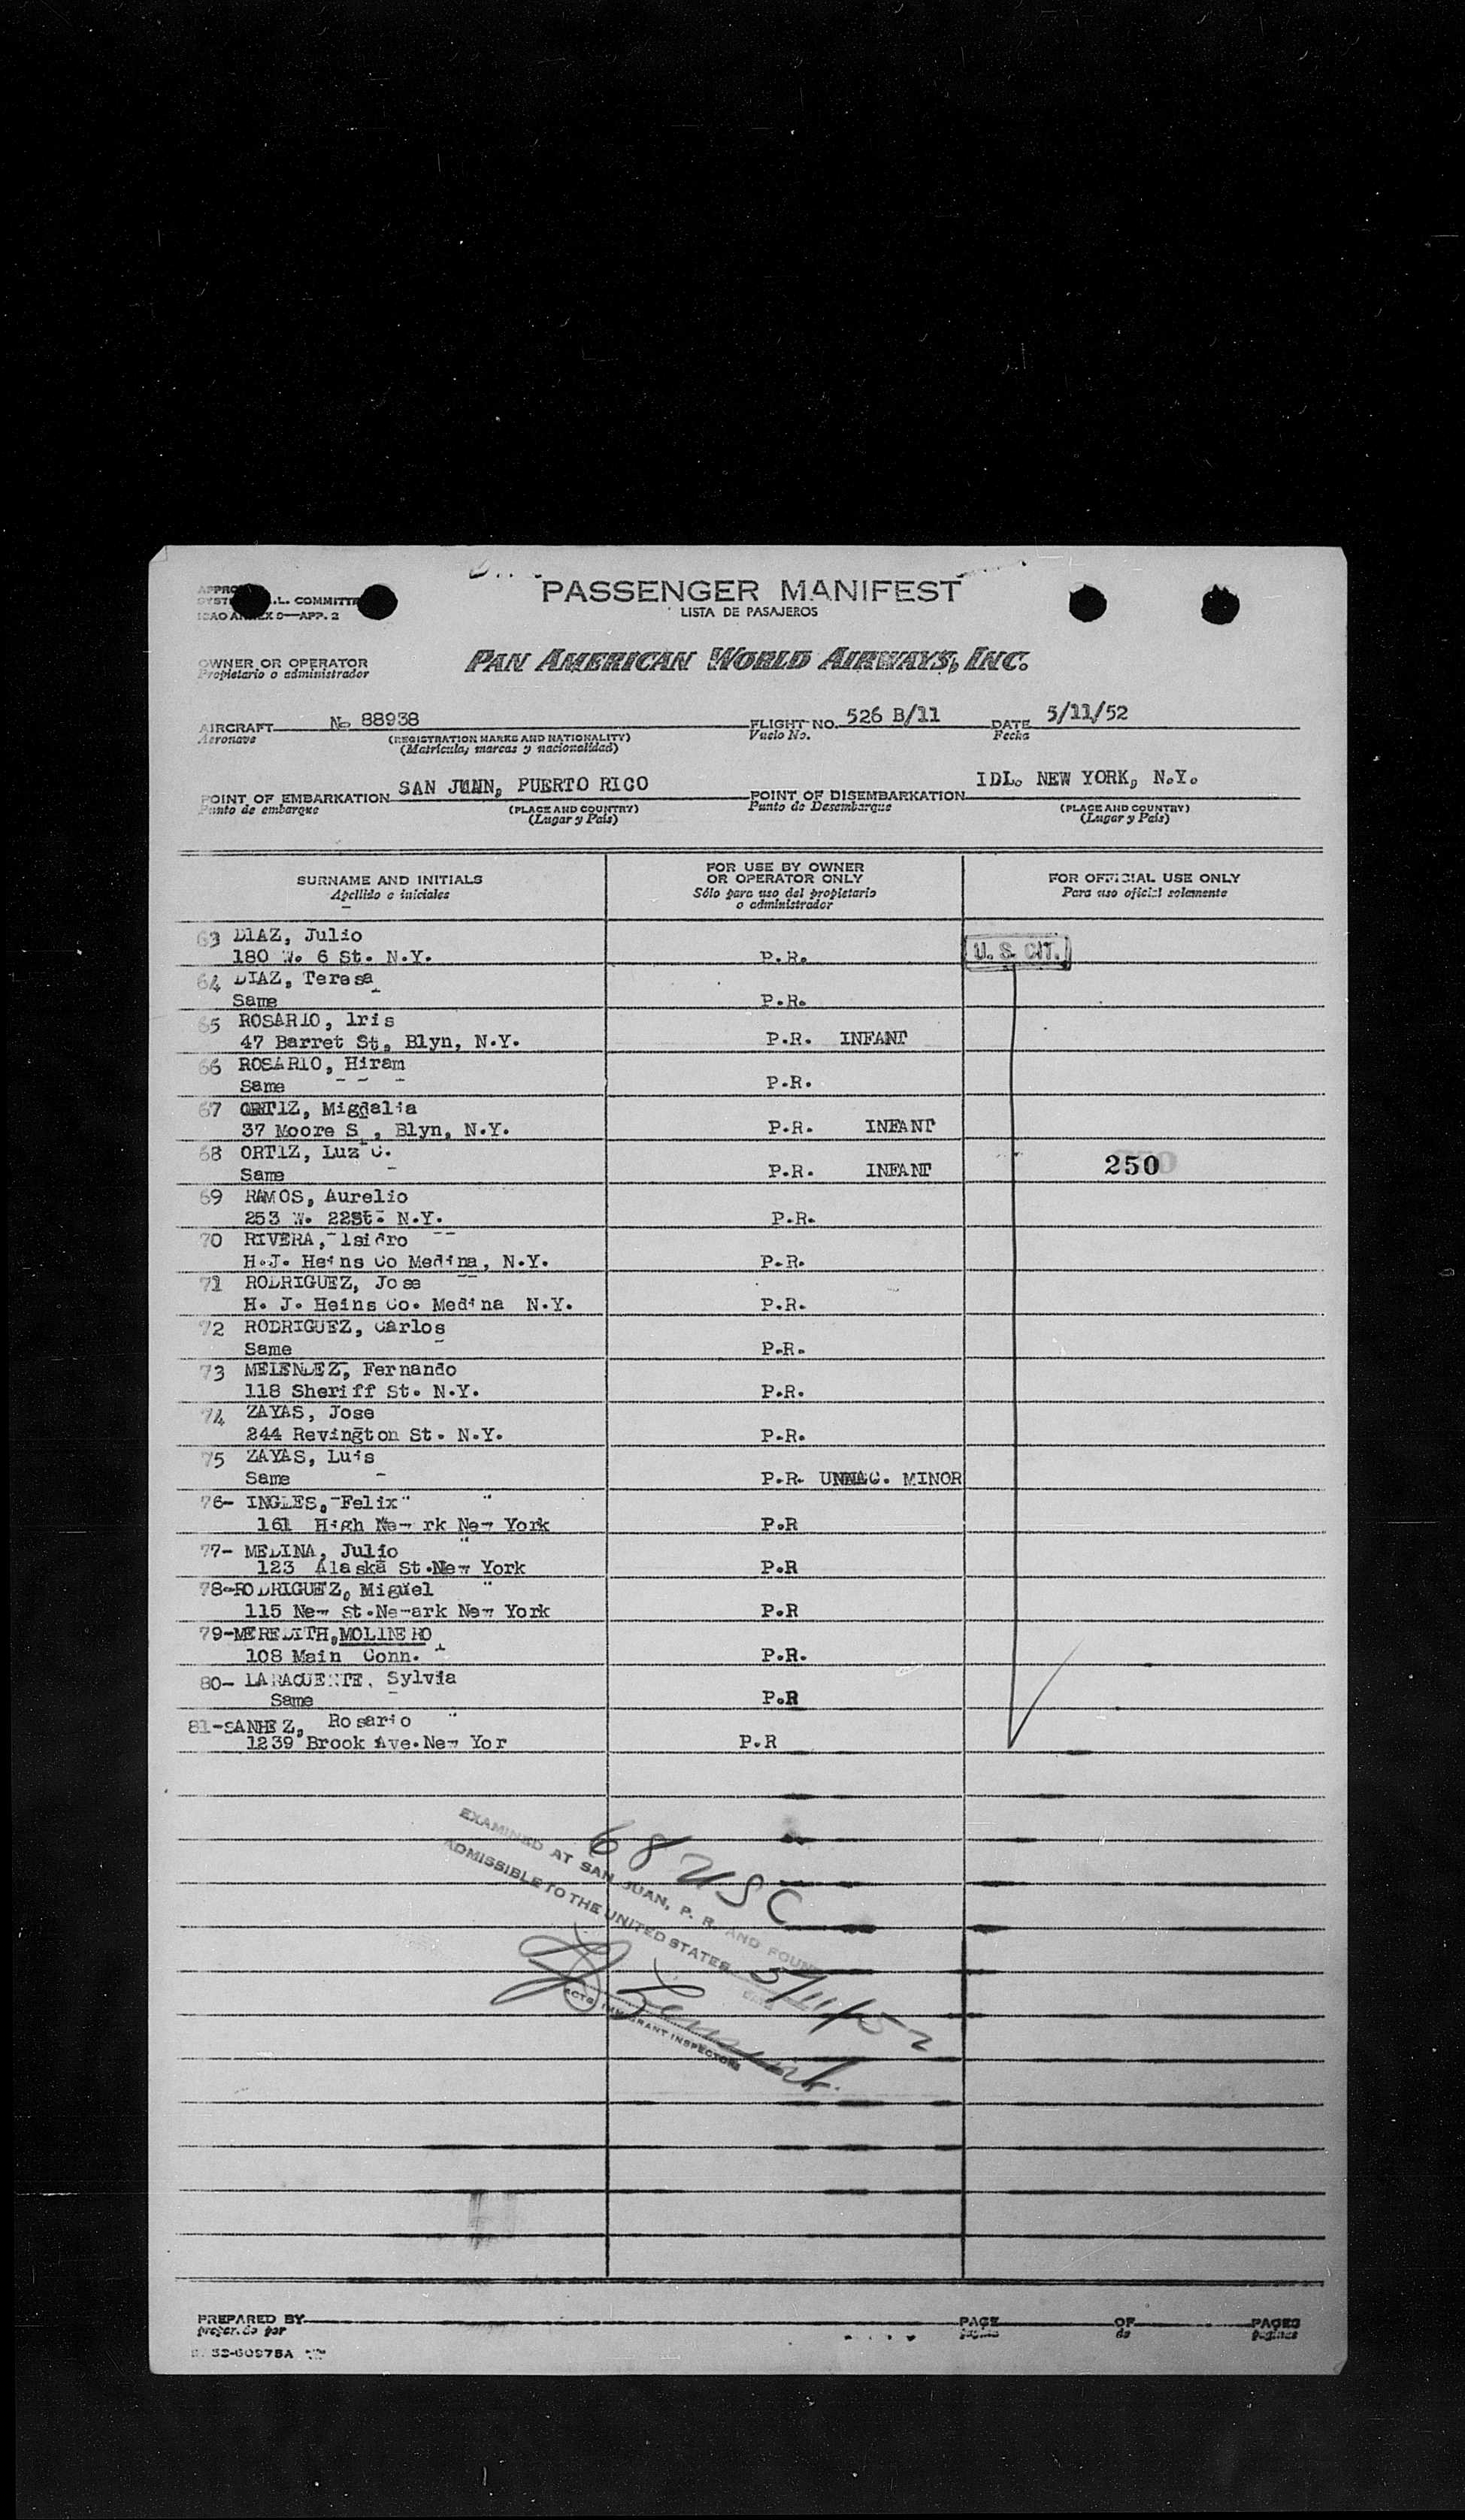 PASSENGER MANIFEST
LISTA DE PASAJEROS
L. COMMITT
APP. 2
OWNER OR OPERATOR
Propietario o administrador
PAN AMERICAN WORLD AIRWAYS, INC.
AIRCRAFT No 88938 FLIGHT NO. 526 B/11 DATE 5/11/52
Aeronave (REGISTRATION MARKS AND NATIONALITY) Vuelo No. Fecha
(Matrícula, marcas y nacionalidad)
POINT OF EMBARKATION SAN JUAN, PUERTO RICO POINT OF DISEMBARKATION IDL. NEW YORK, N.Y.
Punto de embarque (PLACE AND COUNTRY) Punto de Desembarque (PLACE AND COUNTRY)
(Lugar y País) (Lugar y País)
SURNAME AND INITIALS
Apellido e iniciales
FOR USE BY OWNER
OR OPERATOR ONLY
Sólo para uso del propietario
o administrador
FOR OFFICIAL USE ONLY
Para uso oficial solamente
63 DIAZ, Julio
180 W. 6 St. N.Y. P.R. U. S. CIT.
64 DIAZ, Teresa
Same P.R.
65 ROSARIO, Iris
47 Barret St, Blyn, N.Y. P.R. INFANT
66 ROSARIO, Hiram
Same P.R.
67 ORTIZ, Migdalia
37 Moore S , Blyn, N.Y. P.R. INFANT
68 ORTIZ, Luz C.
Same P.R. INFANT 250
69 RAMOS, Aurelio
253 W. 22St. N.Y. P.R.
70 RIVERA, Isidro
H.J. Heins Co Medina, N.Y. P.R.
71 RODRIGUEZ, Jose
H. J. Heins Co. Medina N.Y. P.R.
72 RODRIGUEZ, Carlos
Same P.R.
73 MELENDEZ, Fernando
118 Sheriff St. N.Y. P.R.
74 ZAYAS, Jose
244 Revington St. N.Y. P.R.
75 ZAYAS, Luis
Same P.R. UNNAC. MINOR
76- INGLES, Felix "
161 High New rk New York P.R
77- MEDINA, Julio "
123 Alaska St.New York P.R
78-RODRIGUEZ, Miguel "
115 New St.Newark New York P.R
79-MEREDITH, MOLINERO
108 Main Conn. P.R.
80- LARACUENTE, Sylvia
Same P.R
81-SANHEZ, Rosario "
1239 Brook Ave.New Yor P.R
68 USC
EXAMINED AT SAN JUAN, P. R. AND FOUND
ADMISSIBLE TO THE UNITED STATES 5/11/52
DATE
ACTG. IMMIGRANT INSPECTOR
PREPARED BY PAGE OF PAGES
prepar.do por página de páginas